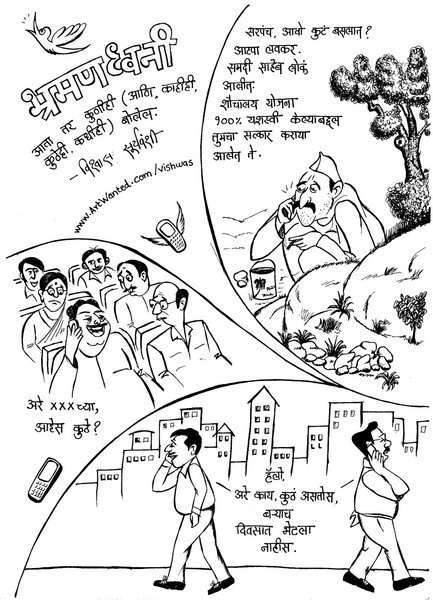 भ्रमणध्वनी
आता तर कुणीही (आणि, काहीही,
कुठेही, कधीही) बोलेल.
- विश्वास सूर्यवंशी
www.ArtWanted.com/vishwas
सरपंच, आवो कुटं बसलात?
आटपा लवकर.
समदी साहेब लोकं
आलीत.
शौचालय योजना
१००% यशस्वी केल्याबद्दल
तुमचा सत्कार कराया
आलेत ते.
अरे xxxच्या,
आहेस कुठे?
हॅलो,
अरे काय, कुठं असतोस,
बऱ्याच
दिवसात भेटला
नाहीस.